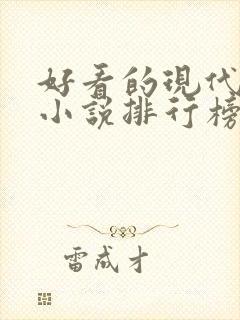 好看的现代
小说排行榜
雷成才